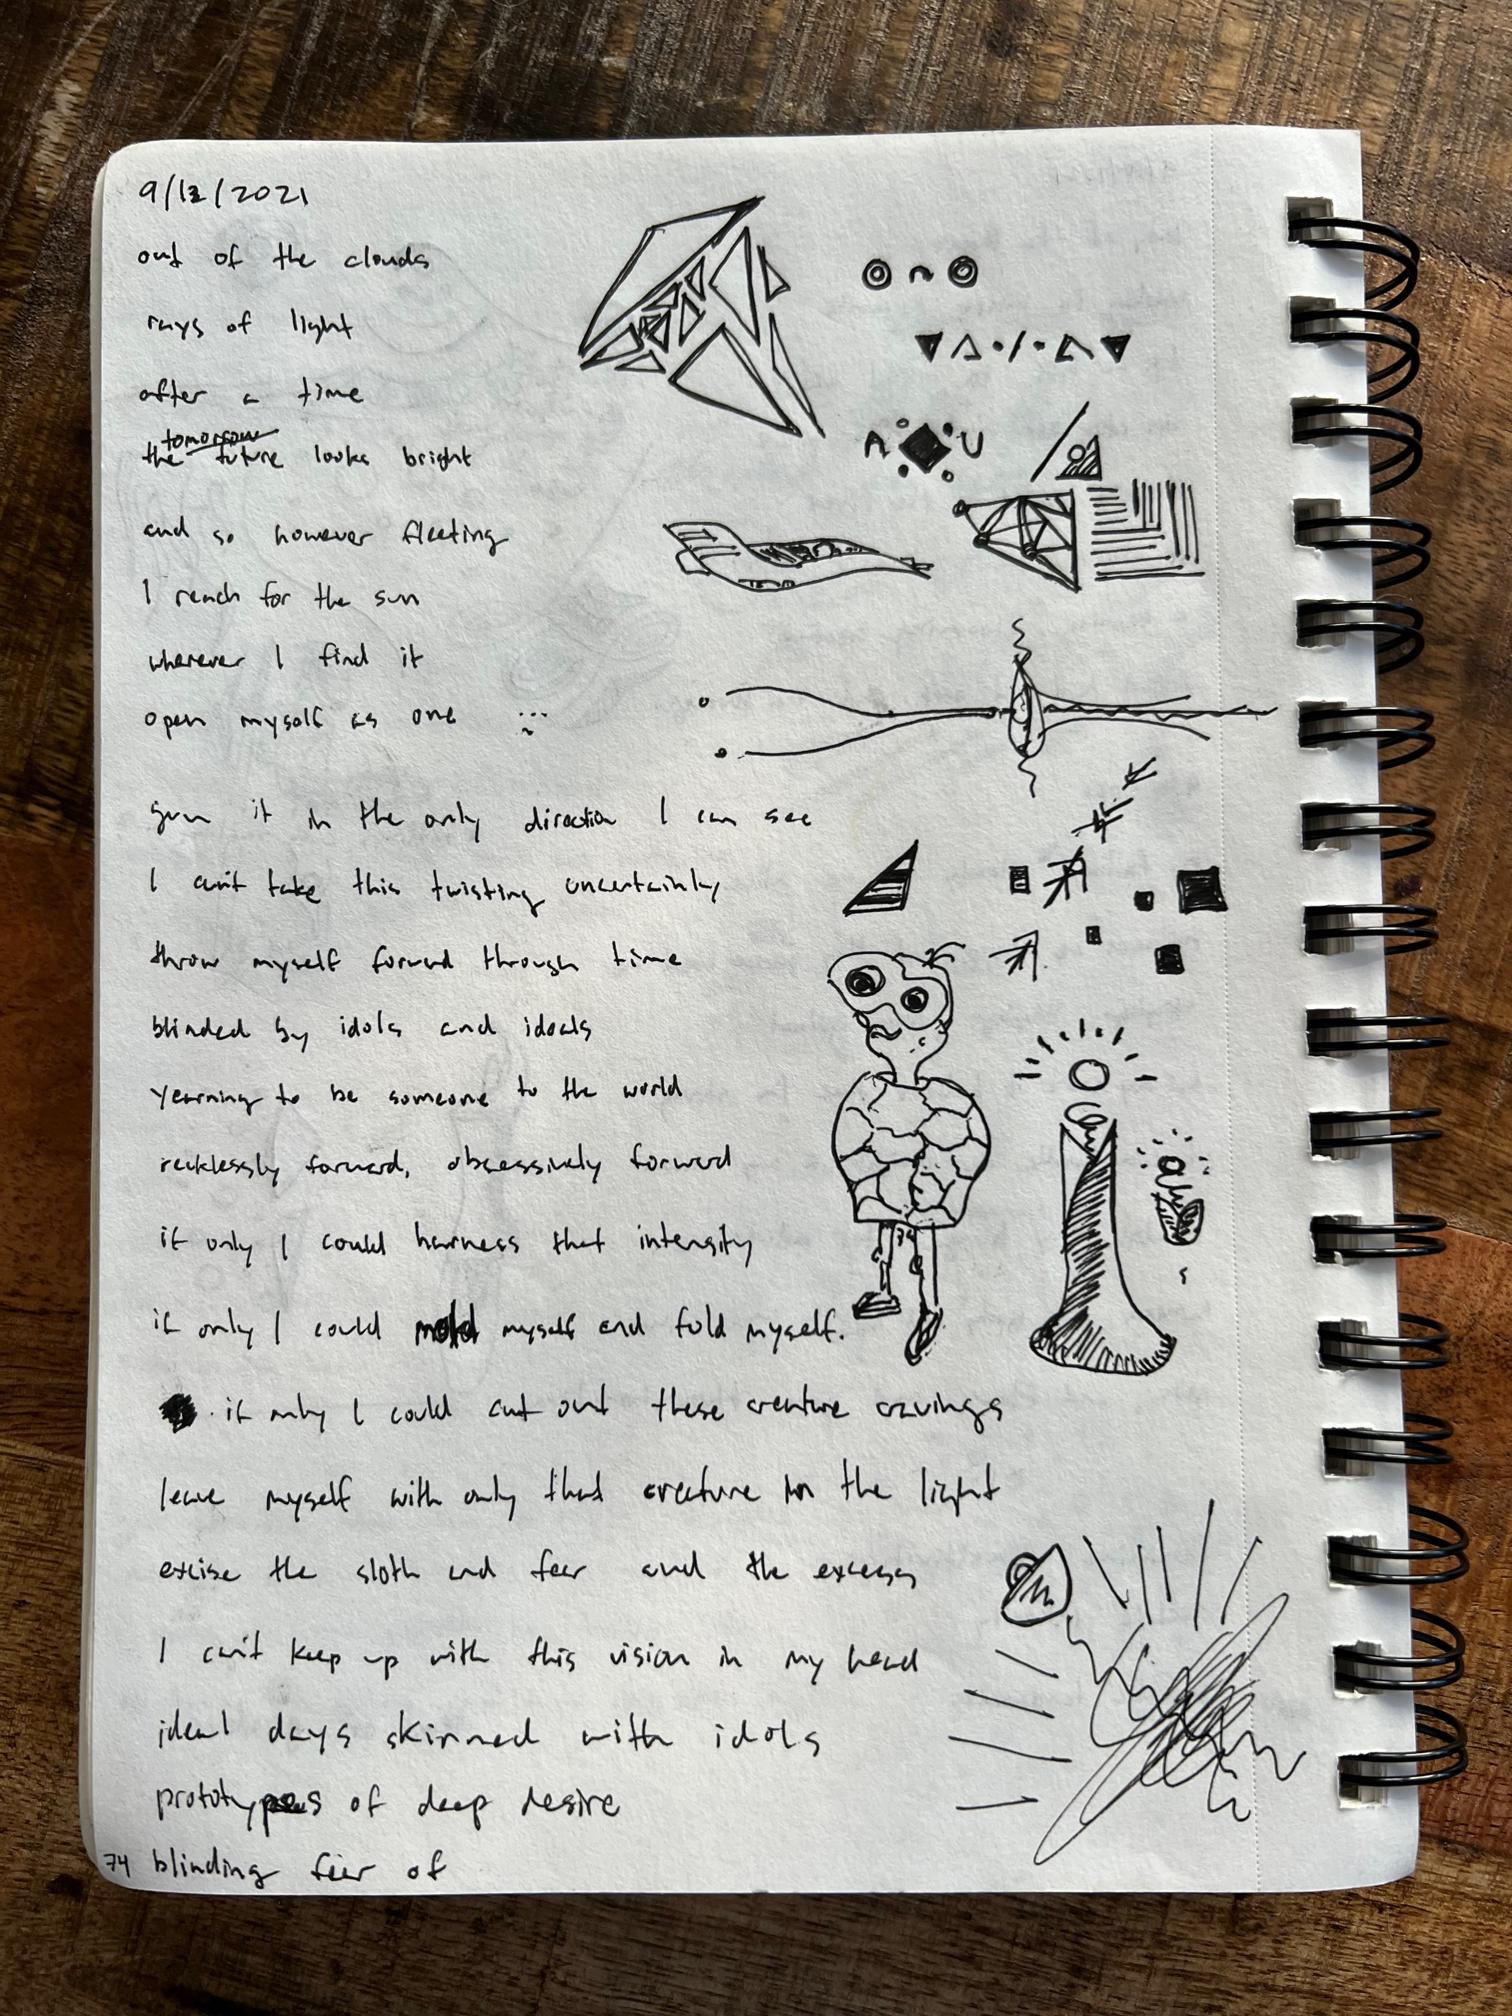 9/12/2021
out of the clouds
rays of light
after a time
tomorrow
the future looks bright
and so however fleeting
I reach for the sun
wherever I find it
open myself as one
gun it in the only direction I can see
I can't take this twisting uncertainty
throw myself forward through time
blinded by idols and ideals
yearning to be someone to the world
recklessly forward, obsessively forward
if only I could harness that intensity
if only I could mold myself and fold myself.
if only I could cut out these creature cravings
leave myself with only that creature in the light
excise the sloth and fear and the excess
I can't keep up with this vision in my head
ideal days skinned with idols
prototypes of deep desire
74 blinding fear of